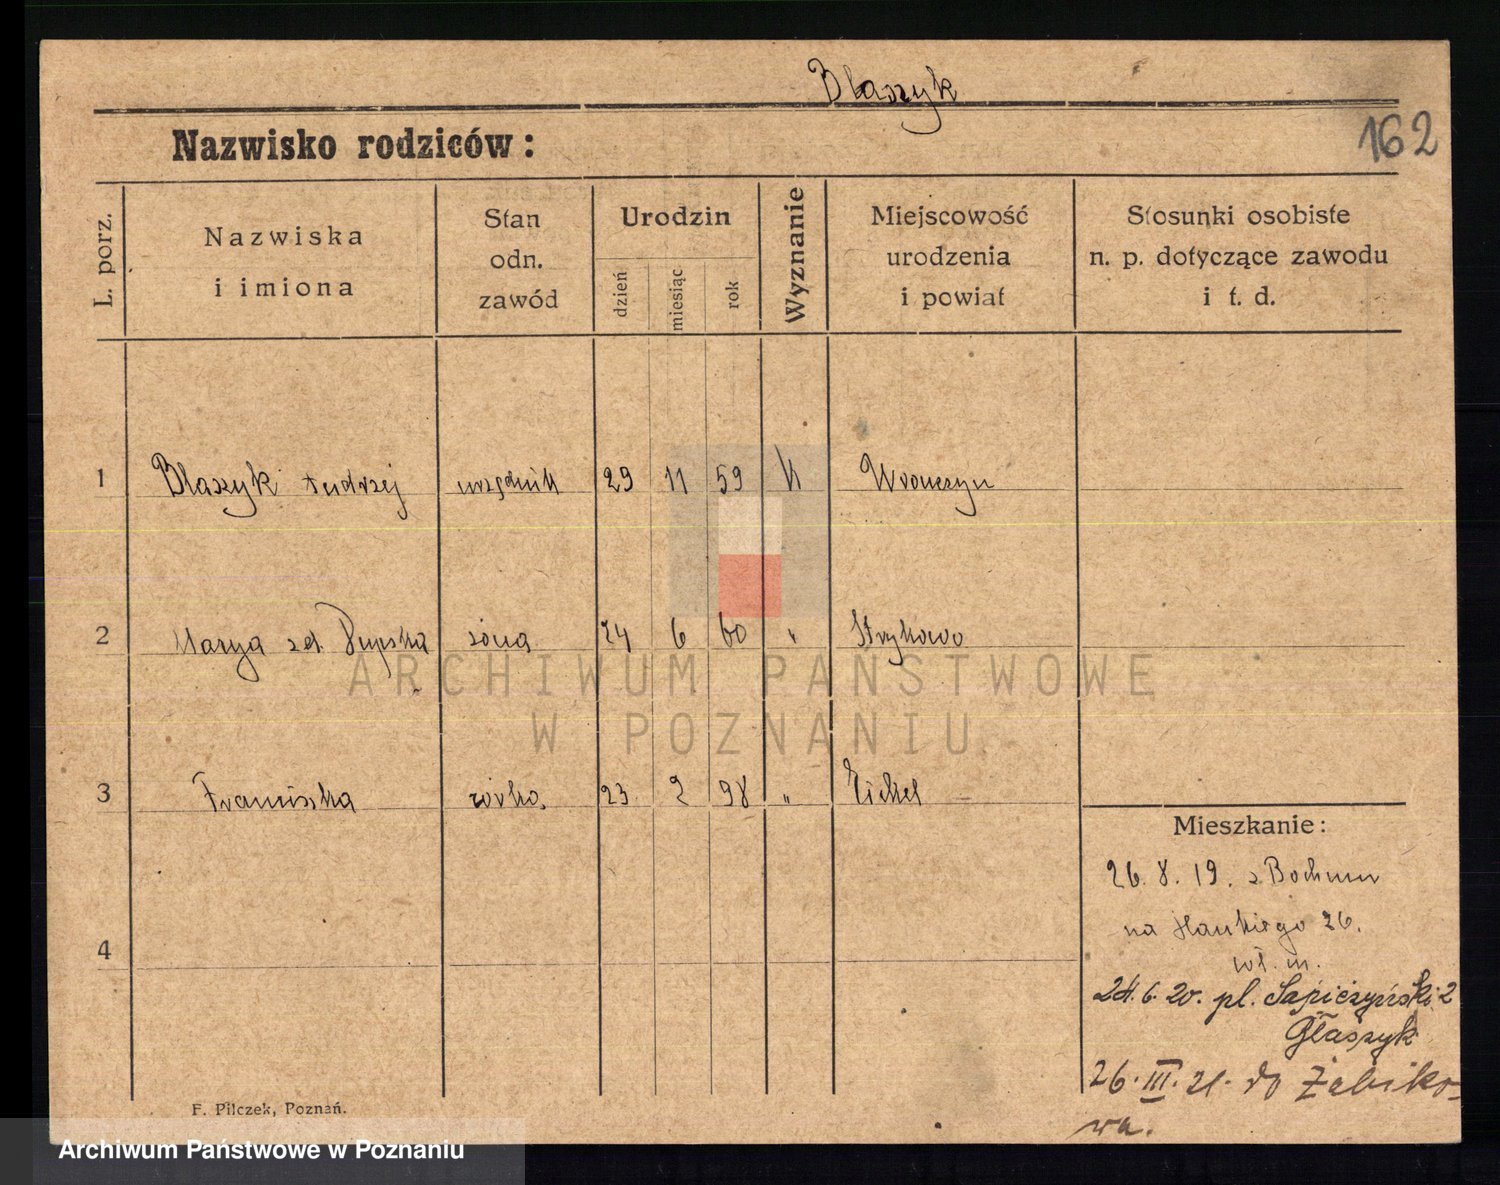 Blaszyk
162
Nazwisko rodziców:
L. porz.
Nazwiska
i imiona
Stan
odn.
zawód
Urodzin
dzień
miesiąc
rok
Wyznanie
Miejscowość
urodzenia
i powiat
Stosunki osobiste
n. p. dotyczące zawodu
i t. d.
1 Blaszyk Andrzej urzędnik 29 11 59 K Wronczyn
2 Marya zd. Pupska żona 24 6 60 " Strykowo
ARCHIWUM PAŃSTWOWE
W POZNANIU
3 Franciszka córka 23 2 98 " Eickel
Mieszkanie:
26. 8. 19. z Bochum
na 26.
4
wł. m.
24. 6. 20. pl. Sapieżyński 2
Głaszyk
26. III. 21. do Żabiko-
wa.
F. Pilczek, Poznań.
Archiwum Państwowe w Poznaniu